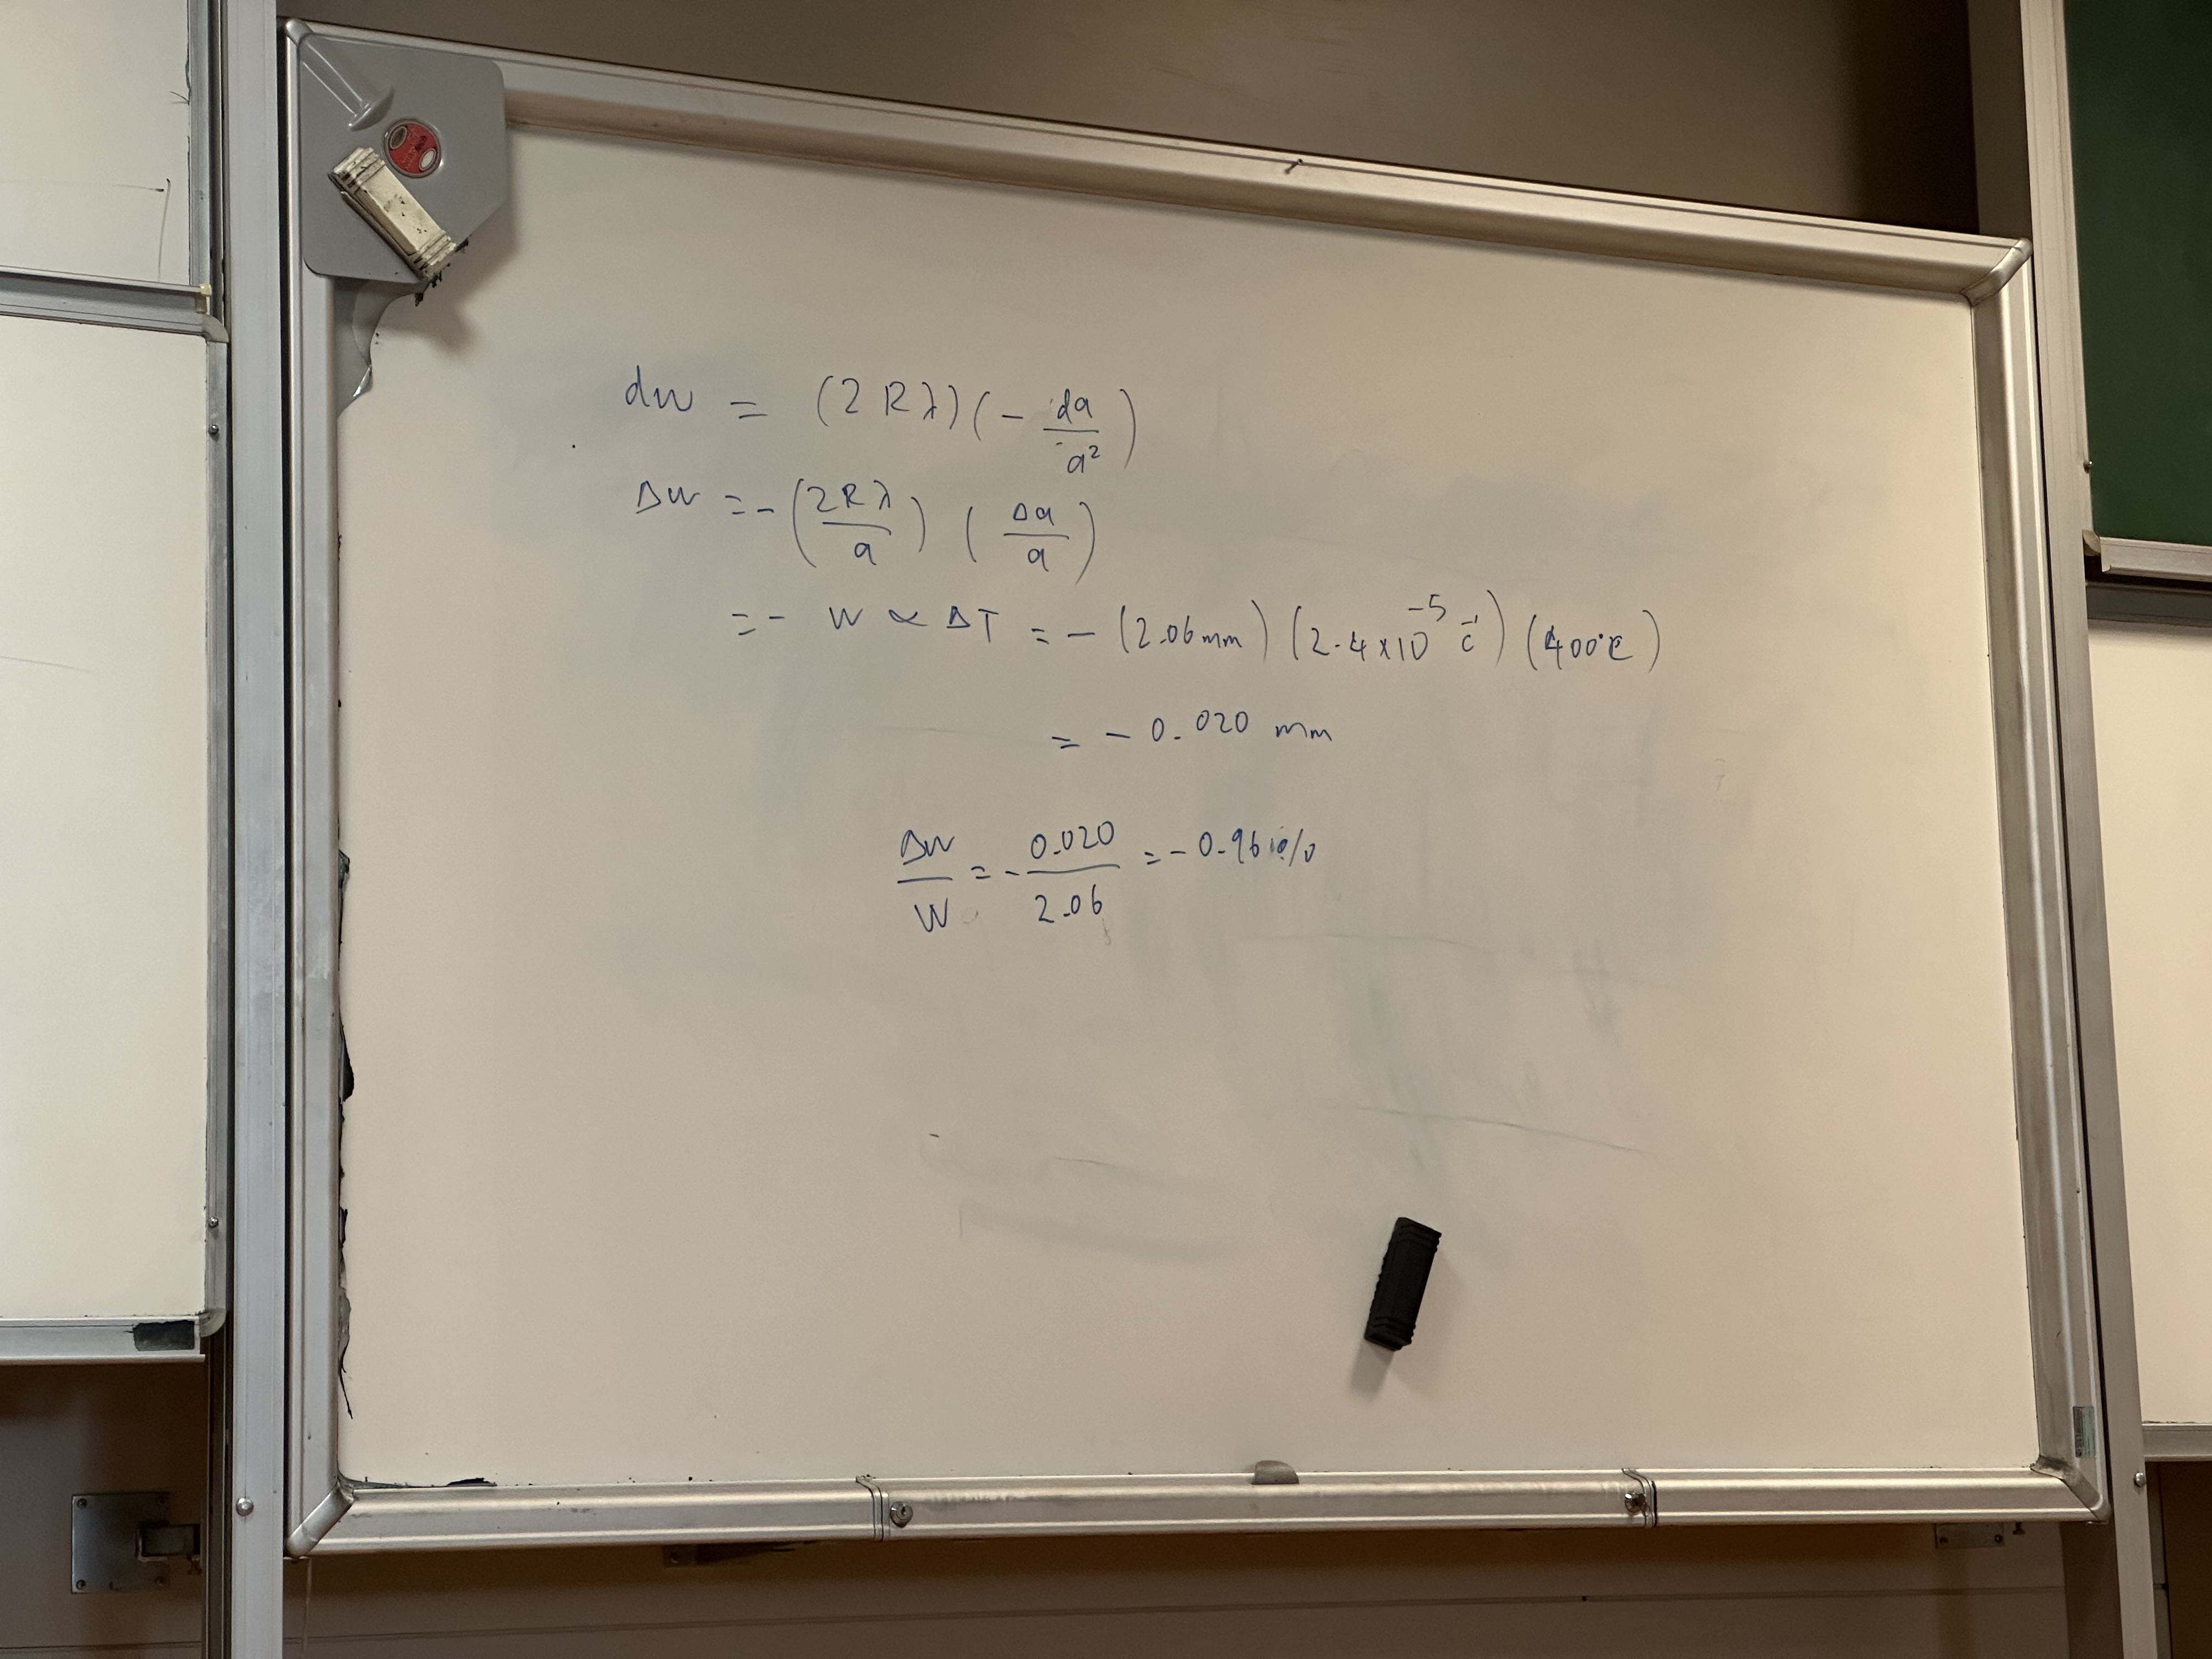 dw = (2Rλ)(- da/a²)
Δw = -(2Rλ/a) (Δa/a)
= - W α ΔT = - (2.06mm) (2.4x10⁻⁵ c⁻¹) (400°c)
= - 0.020 mm
ΔW/W = - 0.020/2.06 = - 0.96 %